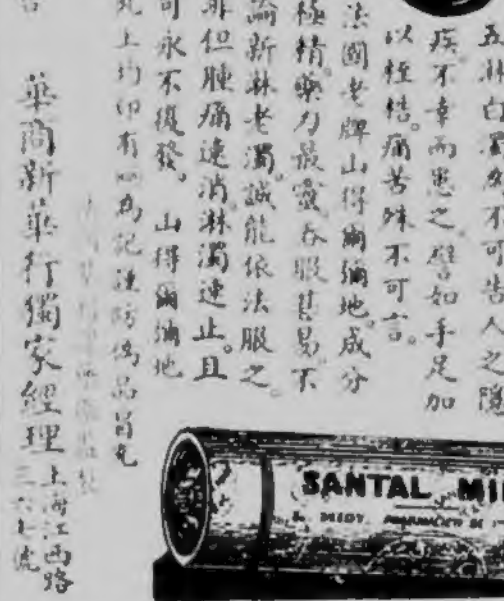 五淋白濁為不可告人之隱
疾。不幸而患之。譬如手足加
以桎梏。痛苦殊不可言。
法國老牌山得爾彌地。成分
極精。藥力最靈。吞服甚易。不
論新淋老濁。誠能依法服之。
非但腫痛速消。淋濁速止。且
可永不復發。山得爾彌地
丸上均印有
為記謹防偽品冒充
華商新華行獨家經理
上海江西路
三六七號
SANTAL MI
MIDY, PHARMACIEN DE